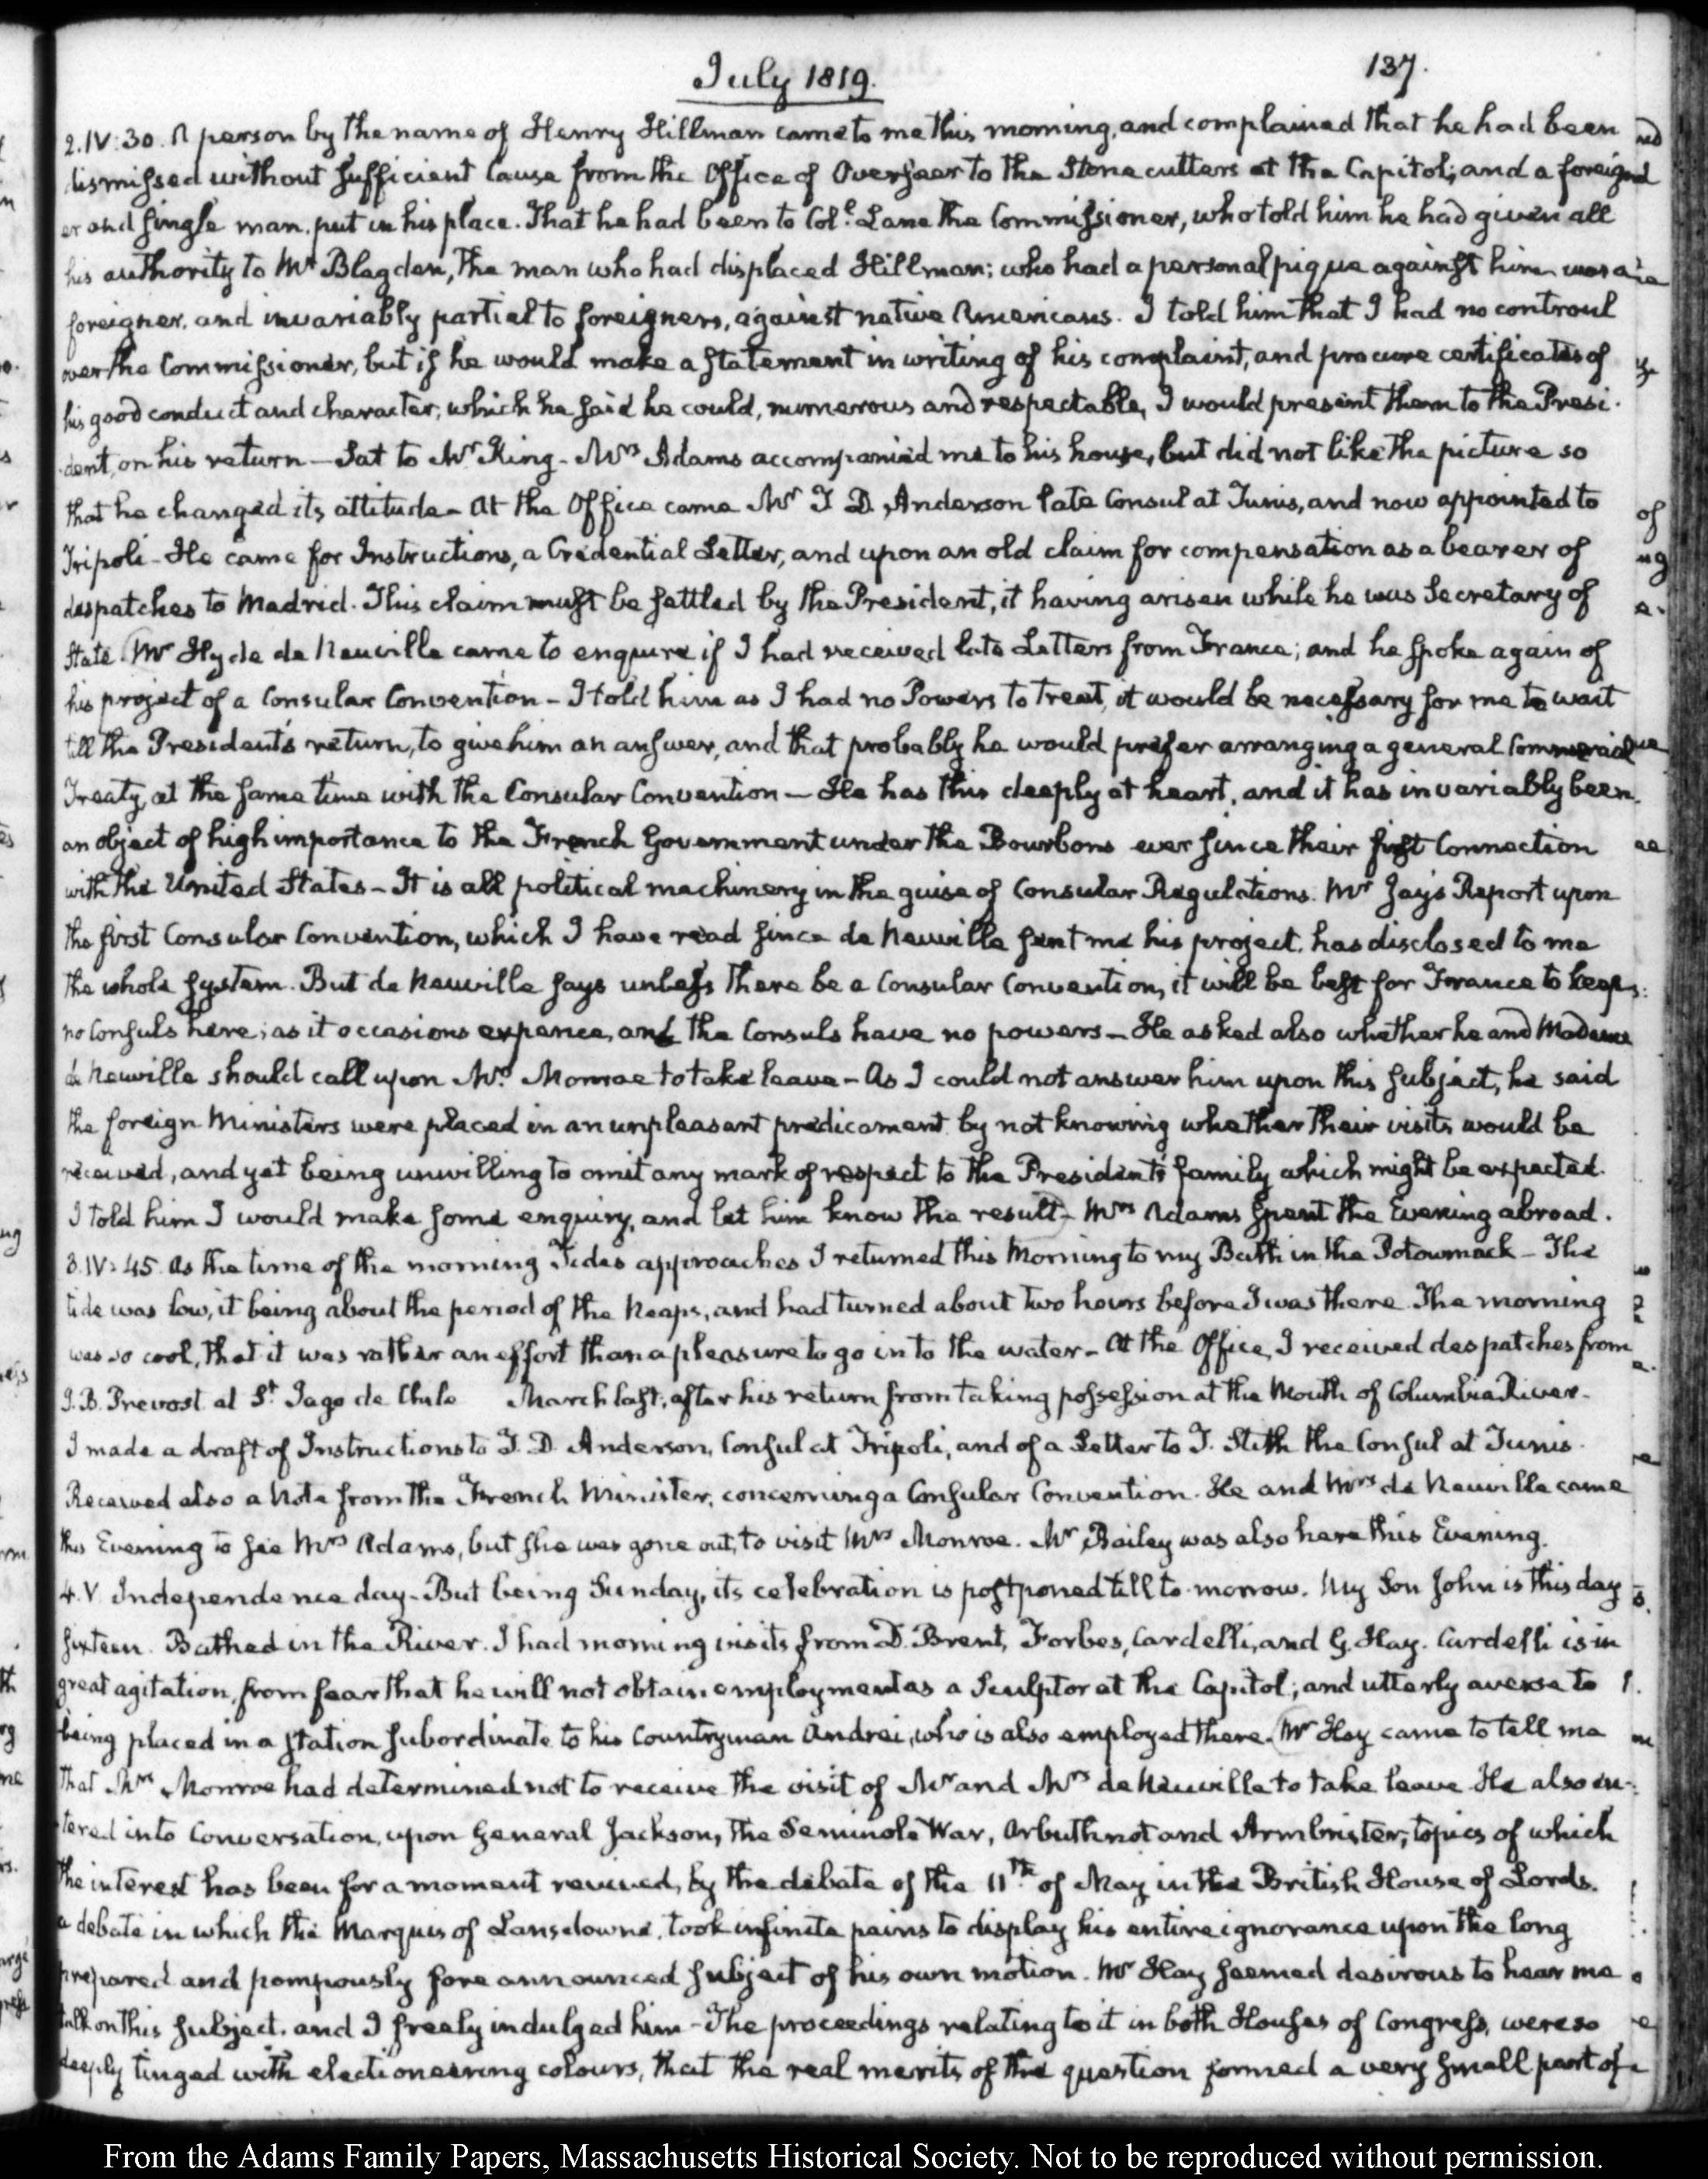 July 1819.
137.
2. IV:30. A person by the name of Henry Hillman came to me this morning, and complained that he had been
dismissed without sufficient Cause from the Office of Overseer to the Stone cutters at the Capitol; and a foreign
er and single man, put in his place. That he had been to Col.l Lane the Commissioner, who told him he had given all
his authority to Mr Blagden, the man who had displaced Hillman; who had a personal pique against him was a
foreigner, and invariably partial to foreigners, against native Americans. I told him that I had no controul
over the Commissioner, but if he would make a statement in writing of his complaint, and procure certificates of
his good conduct and character, which he said he could, numerous and respectable, I would present them to the Presi-
-dent, on his return — Sat to Mr King - Mrs Adams accompanied me to his house, but did not like the picture so
that he changed its attitude - At the Office came Mr T. D. Anderson late Consul at Tunis, and now appointed to
Tripoli - He came for Instructions, a Credential Letter, and upon an old claim for compensation as a bearer of
despatches to Madrid. This claim must be settled by the President, it having arisen while he was Secretary of
State. Mr Hyde de Neuville came to enquire if I had received late Letters from France; and he spoke again of
his project of a Consular Convention - I told him as I had no Powers to treat, it would be necessary for me to wait
till the President's return, to give him an answer, and that probably he would prefer arranging a general Commercial
Treaty, at the same time with the Consular Convention — He has this deeply at heart, and it has invariably been
an object of high importance to the French Government under the Bourbons ever since their first Connection
with the United States - It is all political machinery in the guise of Consular Regulations. Mr Jay's Report upon
the first Consular Convention, which I have read since de Neuville sent me his project, has disclosed to me
the whole system. But de Neuville says unless there be a Consular Convention, it will be best for France to keep
no Consuls here; as it occasions expence, and the Consuls have no powers - He asked also whether he and Madame
de Neuville should call upon Mrs Monroe to take leave - As I could not answer him upon this subject, he said
the foreign Ministers were placed in an unpleasant predicament by not knowing whether their visits would be
received, and yet being unwilling to omit any mark of respect to the President's family which might be expected.
I told him I would make some enquiry, and let him know the result - Mrs Adams spent the Evening abroad.
3. IV:45. As the time of the morning Tides approaches I returned this Morning to my Bath in the Potowmack - The
tide was low, it being about the period of the Neaps, and had turned about two hours before I was there. The morning
was so cool, that it was rather an effort than a pleasure to go in to the water - At the Office, I received despatches from
J. B. Prevost at St Iago de Chile March last, after his return from taking possession at the Mouth of Columbia River -
I made a draft of Instructions to T. D. Anderson, Consul at Tripoli, and of a Letter to T. Stith the Consul at Tunis.
Received also a Note from the French Minister, concerning a Consular Convention. He and Mrs de Neuville came
this Evening to see Mrs Adams, but she was gone out, to visit Mrs Monroe. Mr Bailey was also here this Evening.
4. V. Independence day - But being Sunday, its celebration is postponed till to-morrow. My Son John is this day
sixteen. Bathed in the River. I had morning visits from D. Brent, Forbes, Cardelli, and G. Hay. Cardelli is in
great agitation, from fear that he will not obtain employment as a Sculptor at the Capitol; and utterly averse to
being placed in a station subordinate to his Countryman Andrei, who is also employed there. Mr Hay came to tell me
that Mrs Monroe had determined not to receive the visit of Mr and Mrs de Neuville to take leave. He also en-
tered into Conversation, upon General Jackson, the Seminole War, Arbuthnot and Armbrister, topics of which
the interest has been for a moment revived, by the debate of the 11th of May in the British House of Lords.
a debate in which the Marquis of Lansdowne, took infinite pains to display his entire ignorance upon the long
prepared and pompously fore announced subject of his own motion. Mr Hay seemed desirous to hear me
talk on this subject, and I freely indulged him - The proceedings relating to it in both Houses of Congress, were so
deeply tinged with electioneering colours, that the real merits of the question formed a very small part of
From the Adams Family Papers, Massachusetts Historical Society. Not to be reproduced without permission.